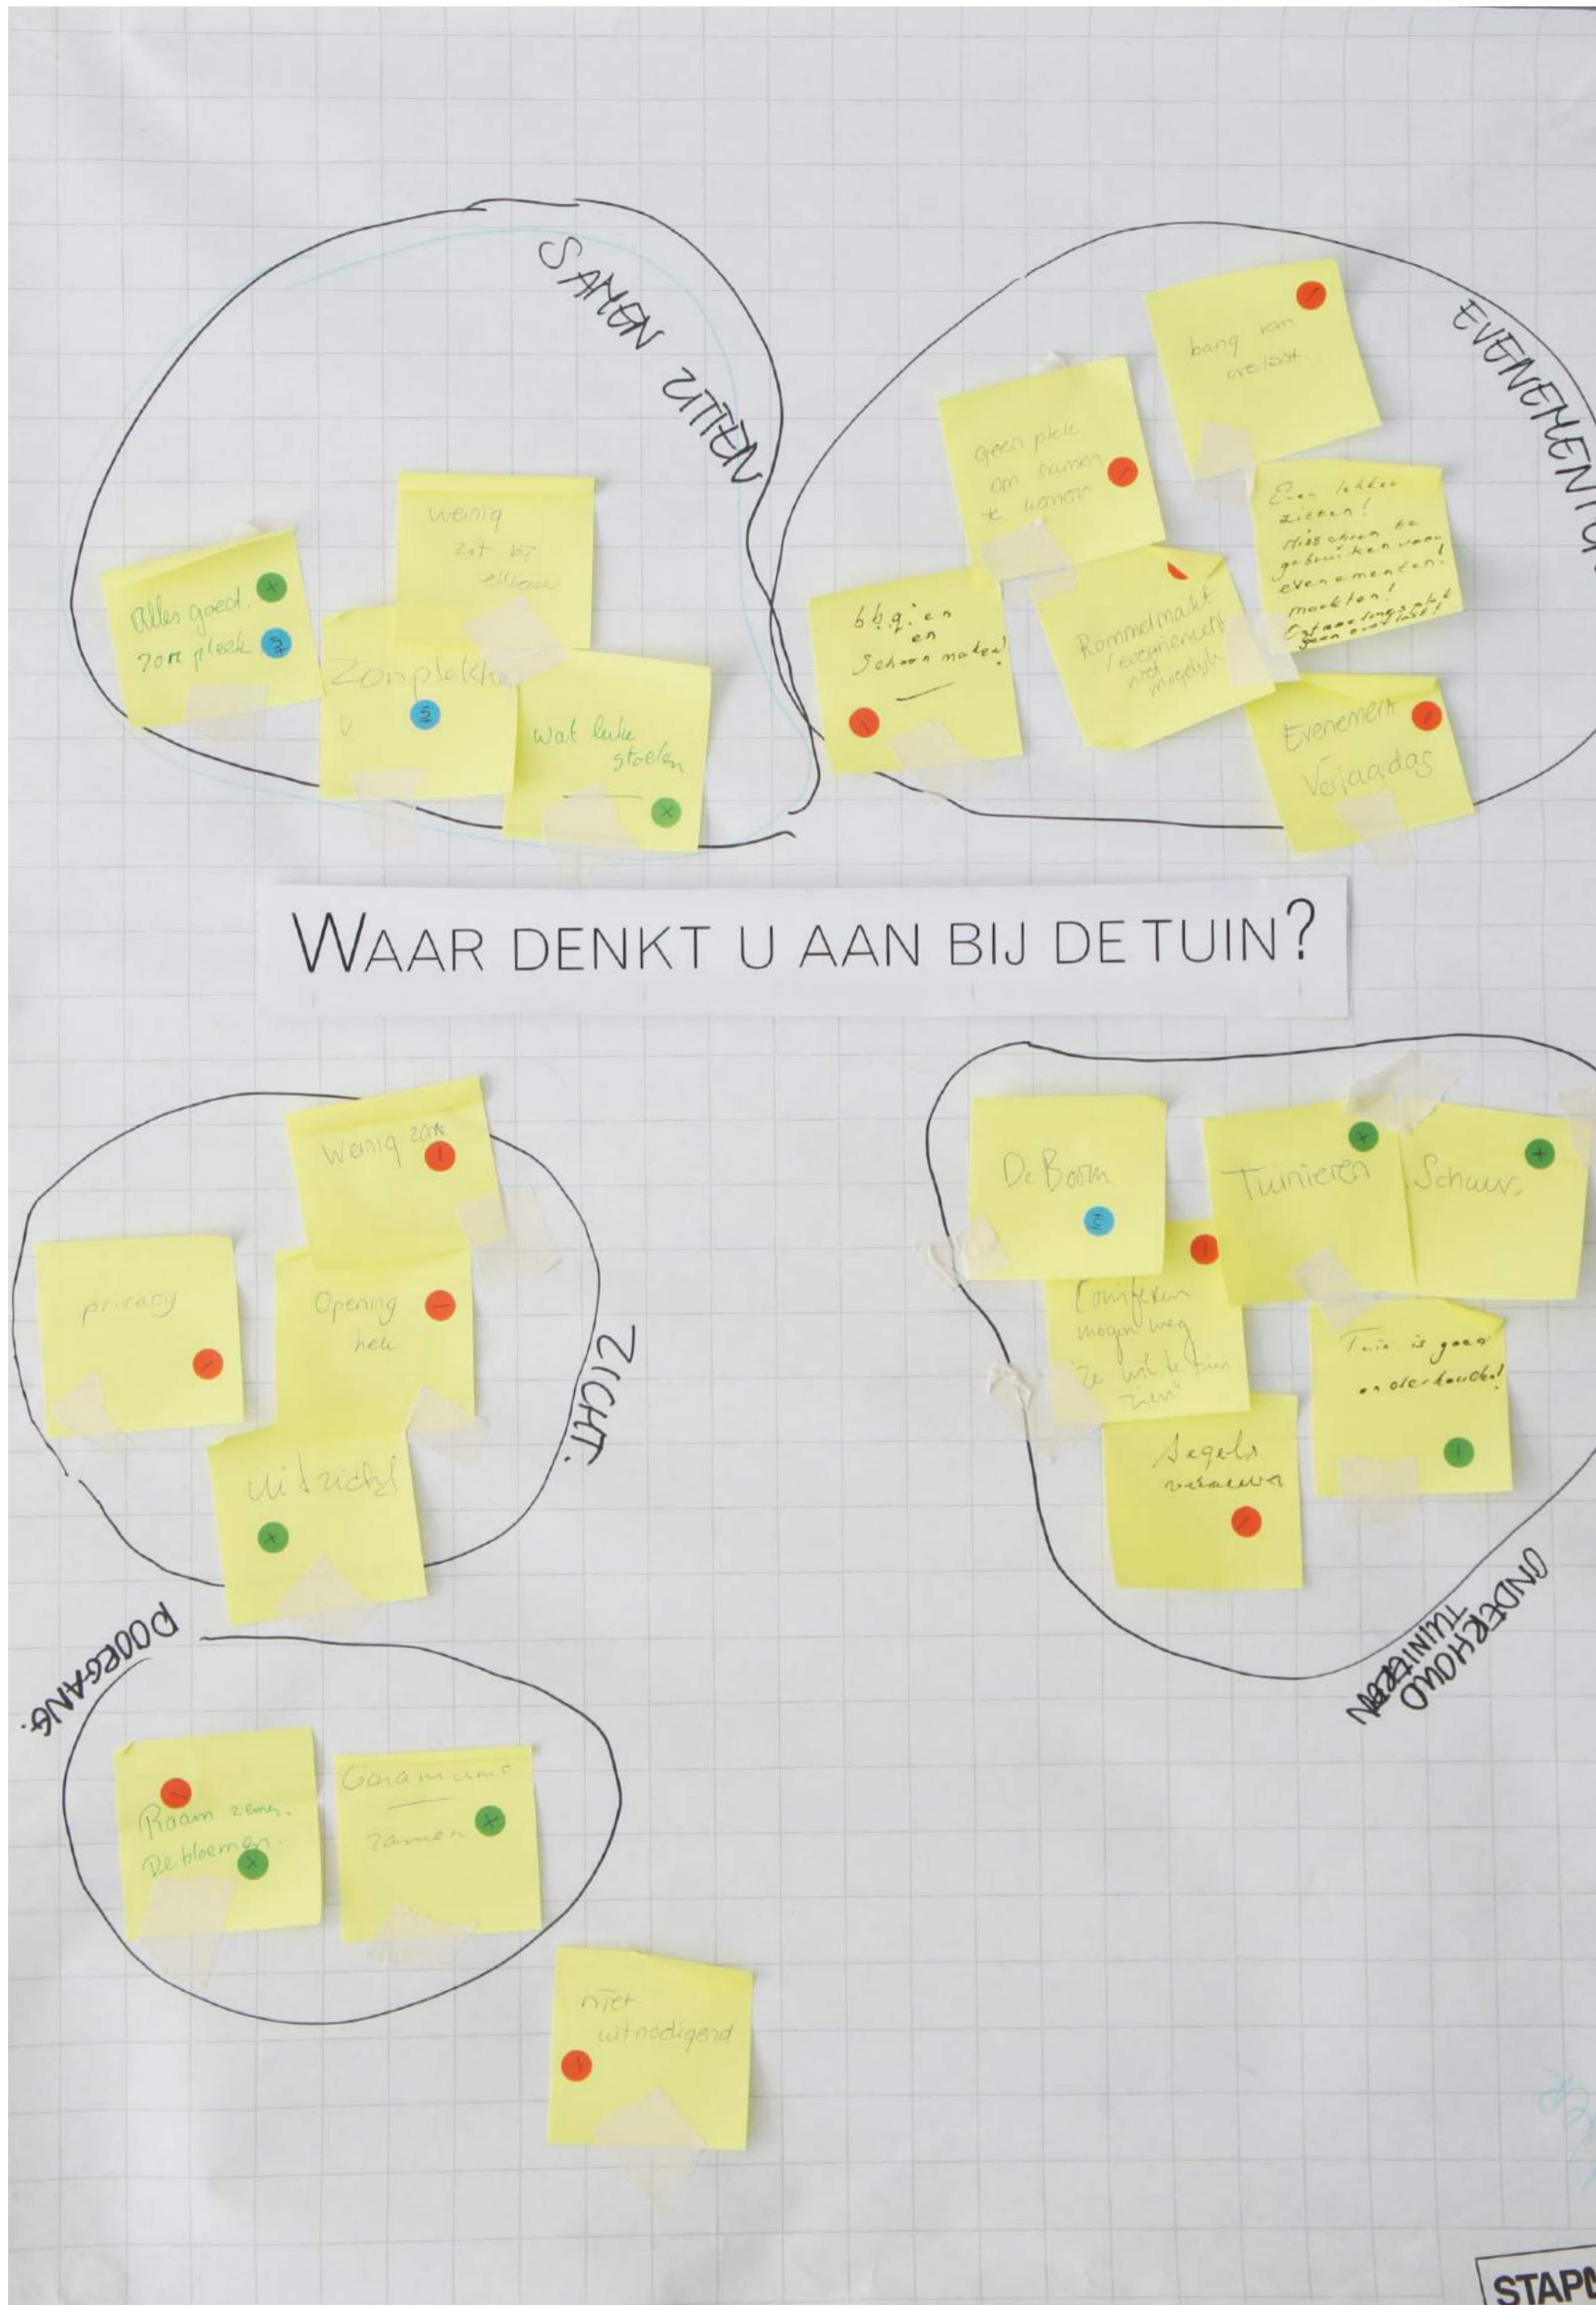 SAMEN ZITTEN
Alles goed.
zon pleek
weinig
zit bij
elkaar
Zonplekke
wat leuke
stoelen
EVENEMENT
bang van
overlast
geen plek
om samen
te komen
Even lekker
zitten!
Misschien te
gebruiken voor
evenementen!
markten!
geen overlast!
bbq'en
en
schoon maken!
Rommelmarkt
/evenement
niet
mogelijk
Evenement
Verjaardag
WAAR DENKT U AAN BIJ DE TUIN?
Weinig zon
privacy
Opening
hek
uitzicht
ZICHT.
De Boom
Tuinieren
Schuur
Coniferen
mogen weg
Tuin is goed
onderhouden!
tegels
vernieuwen
ONDERHOUD
TUINIEREN
DOORGANG.
Raam zemen.
De bloemen.
Geraniums
zamen
niet
uitnodigend
STAP